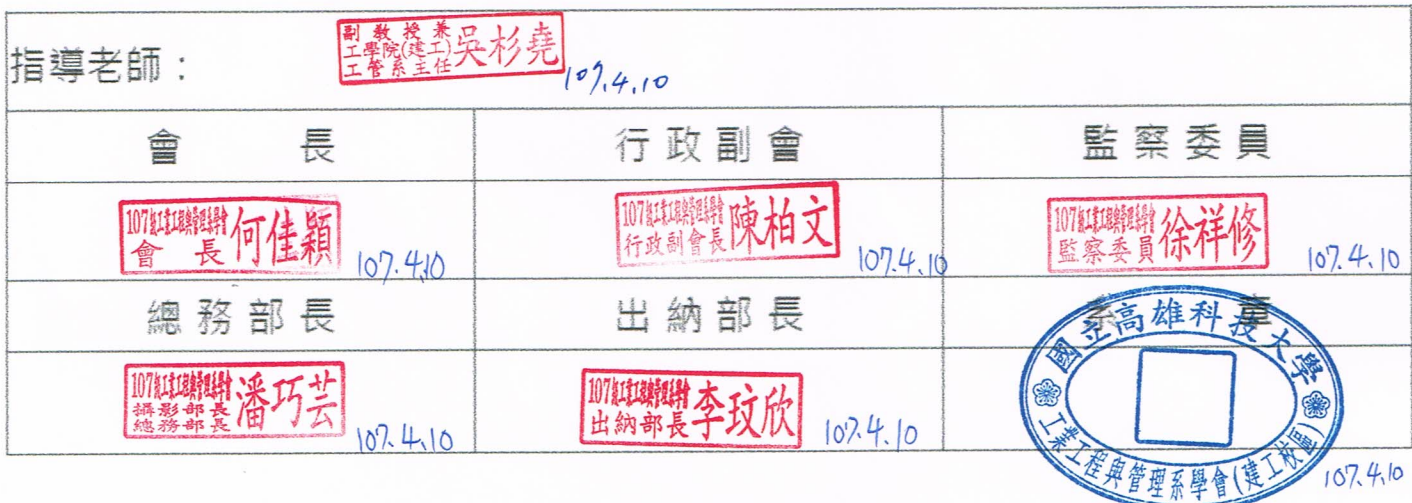 指導老師：
副教授兼
工學院(建工)
工管系主任
吳杉堯
107.4.10
會長
行政副會
監察委員
107級工業工程與管理系學會
會長
何佳穎
107.4.10
107級工業工程與管理系學會
行政副會長
陳柏文
107.4.10
107級工業工程與管理系學會
監察委員
徐祥修
107.4.10
總務部長
出納部長
系章
107級工業工程與管理系學會
攝影部長
總務部長
潘巧芸
107.4.10
107級工業工程與管理系學會
出納部長
李玟欣
107.4.10
國立高雄科技大學
工業工程與管理系學會(建工校區)
107.4.10